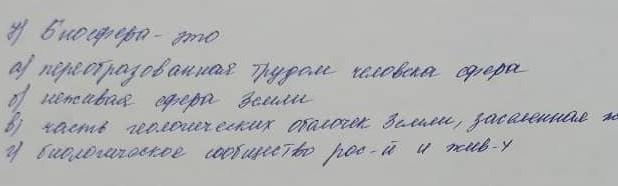 7) Биосфера - это
а) переобразованная трудом человека сфера
б) неживая сфера Земли
в) часть геологических оболочек Земли, заселенная ж
г) биологическое сообщество рас-й и жив-х